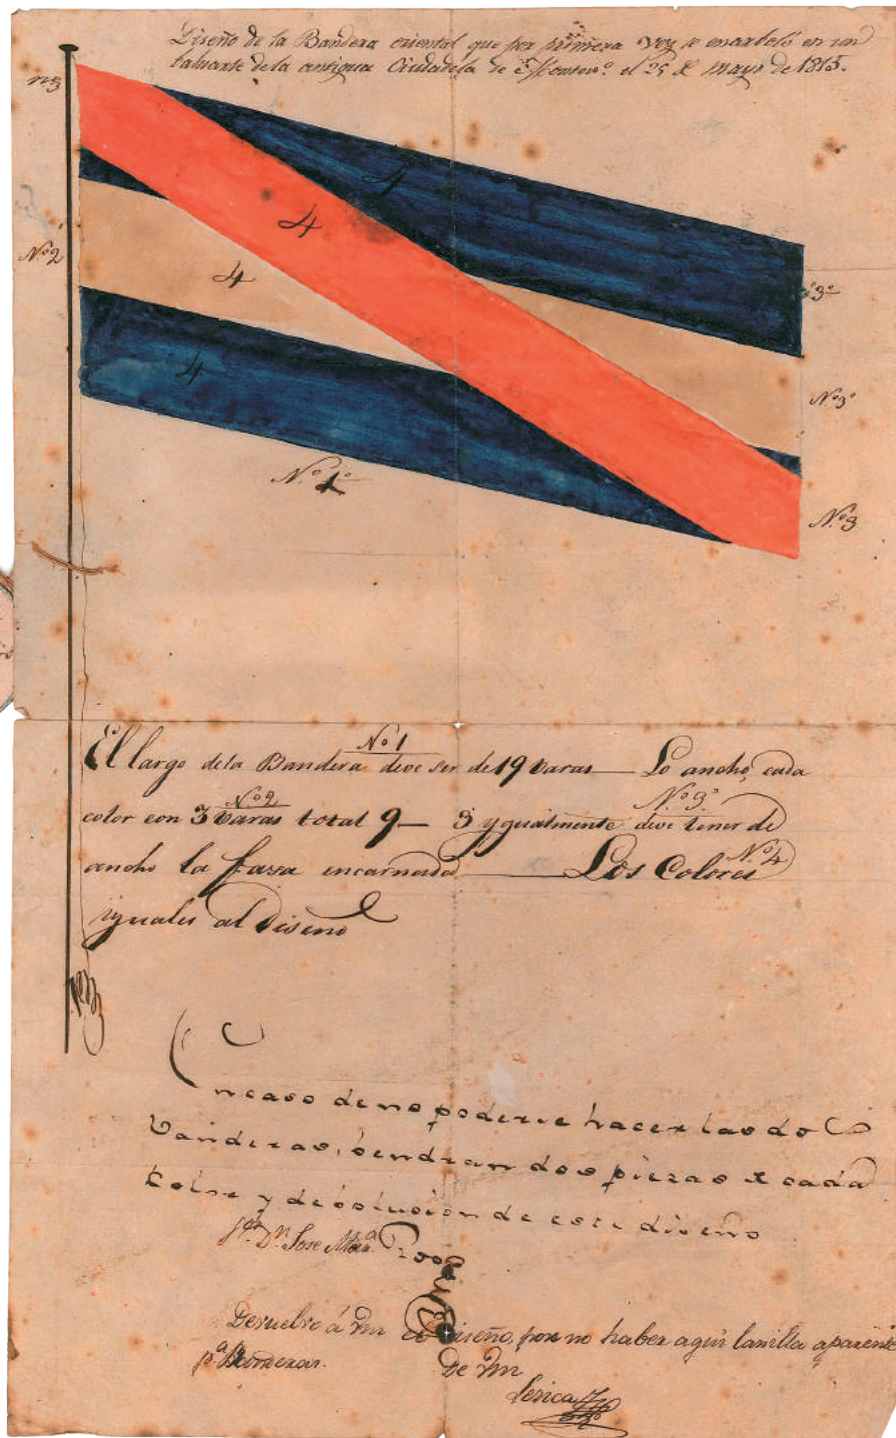 Diseño de la Bandera oriental que por primera vez se enarboló en un
baluarte de la antigua Ciudadela de Montevº. el 25 de Mayo de 1815.
nº3
4
4
Nº 2
4
3º
4
Nº 3º
Nº. 1º
Nº 3
Nº 1
El largo dela Bandera deve ser de 19 varas — Lo ancho, cada
Nº 2 Nº. 3º
color con 3 varas total 9 — 3 ygualmente deve tener de
Nº 4
ancho la faxa encarnada — Los Colores
yguales al Diseño
En caso de no poderse hacer las dos
Vanderas, vendran dos piezas de cada
Color y devolucion de este diseño
Sr. Dn. Jose Mara. Roo
Devuelvo á Vm el Diseño, por no haber aqui lanilla aparente
pª Banderas.
De Vm
Lerica